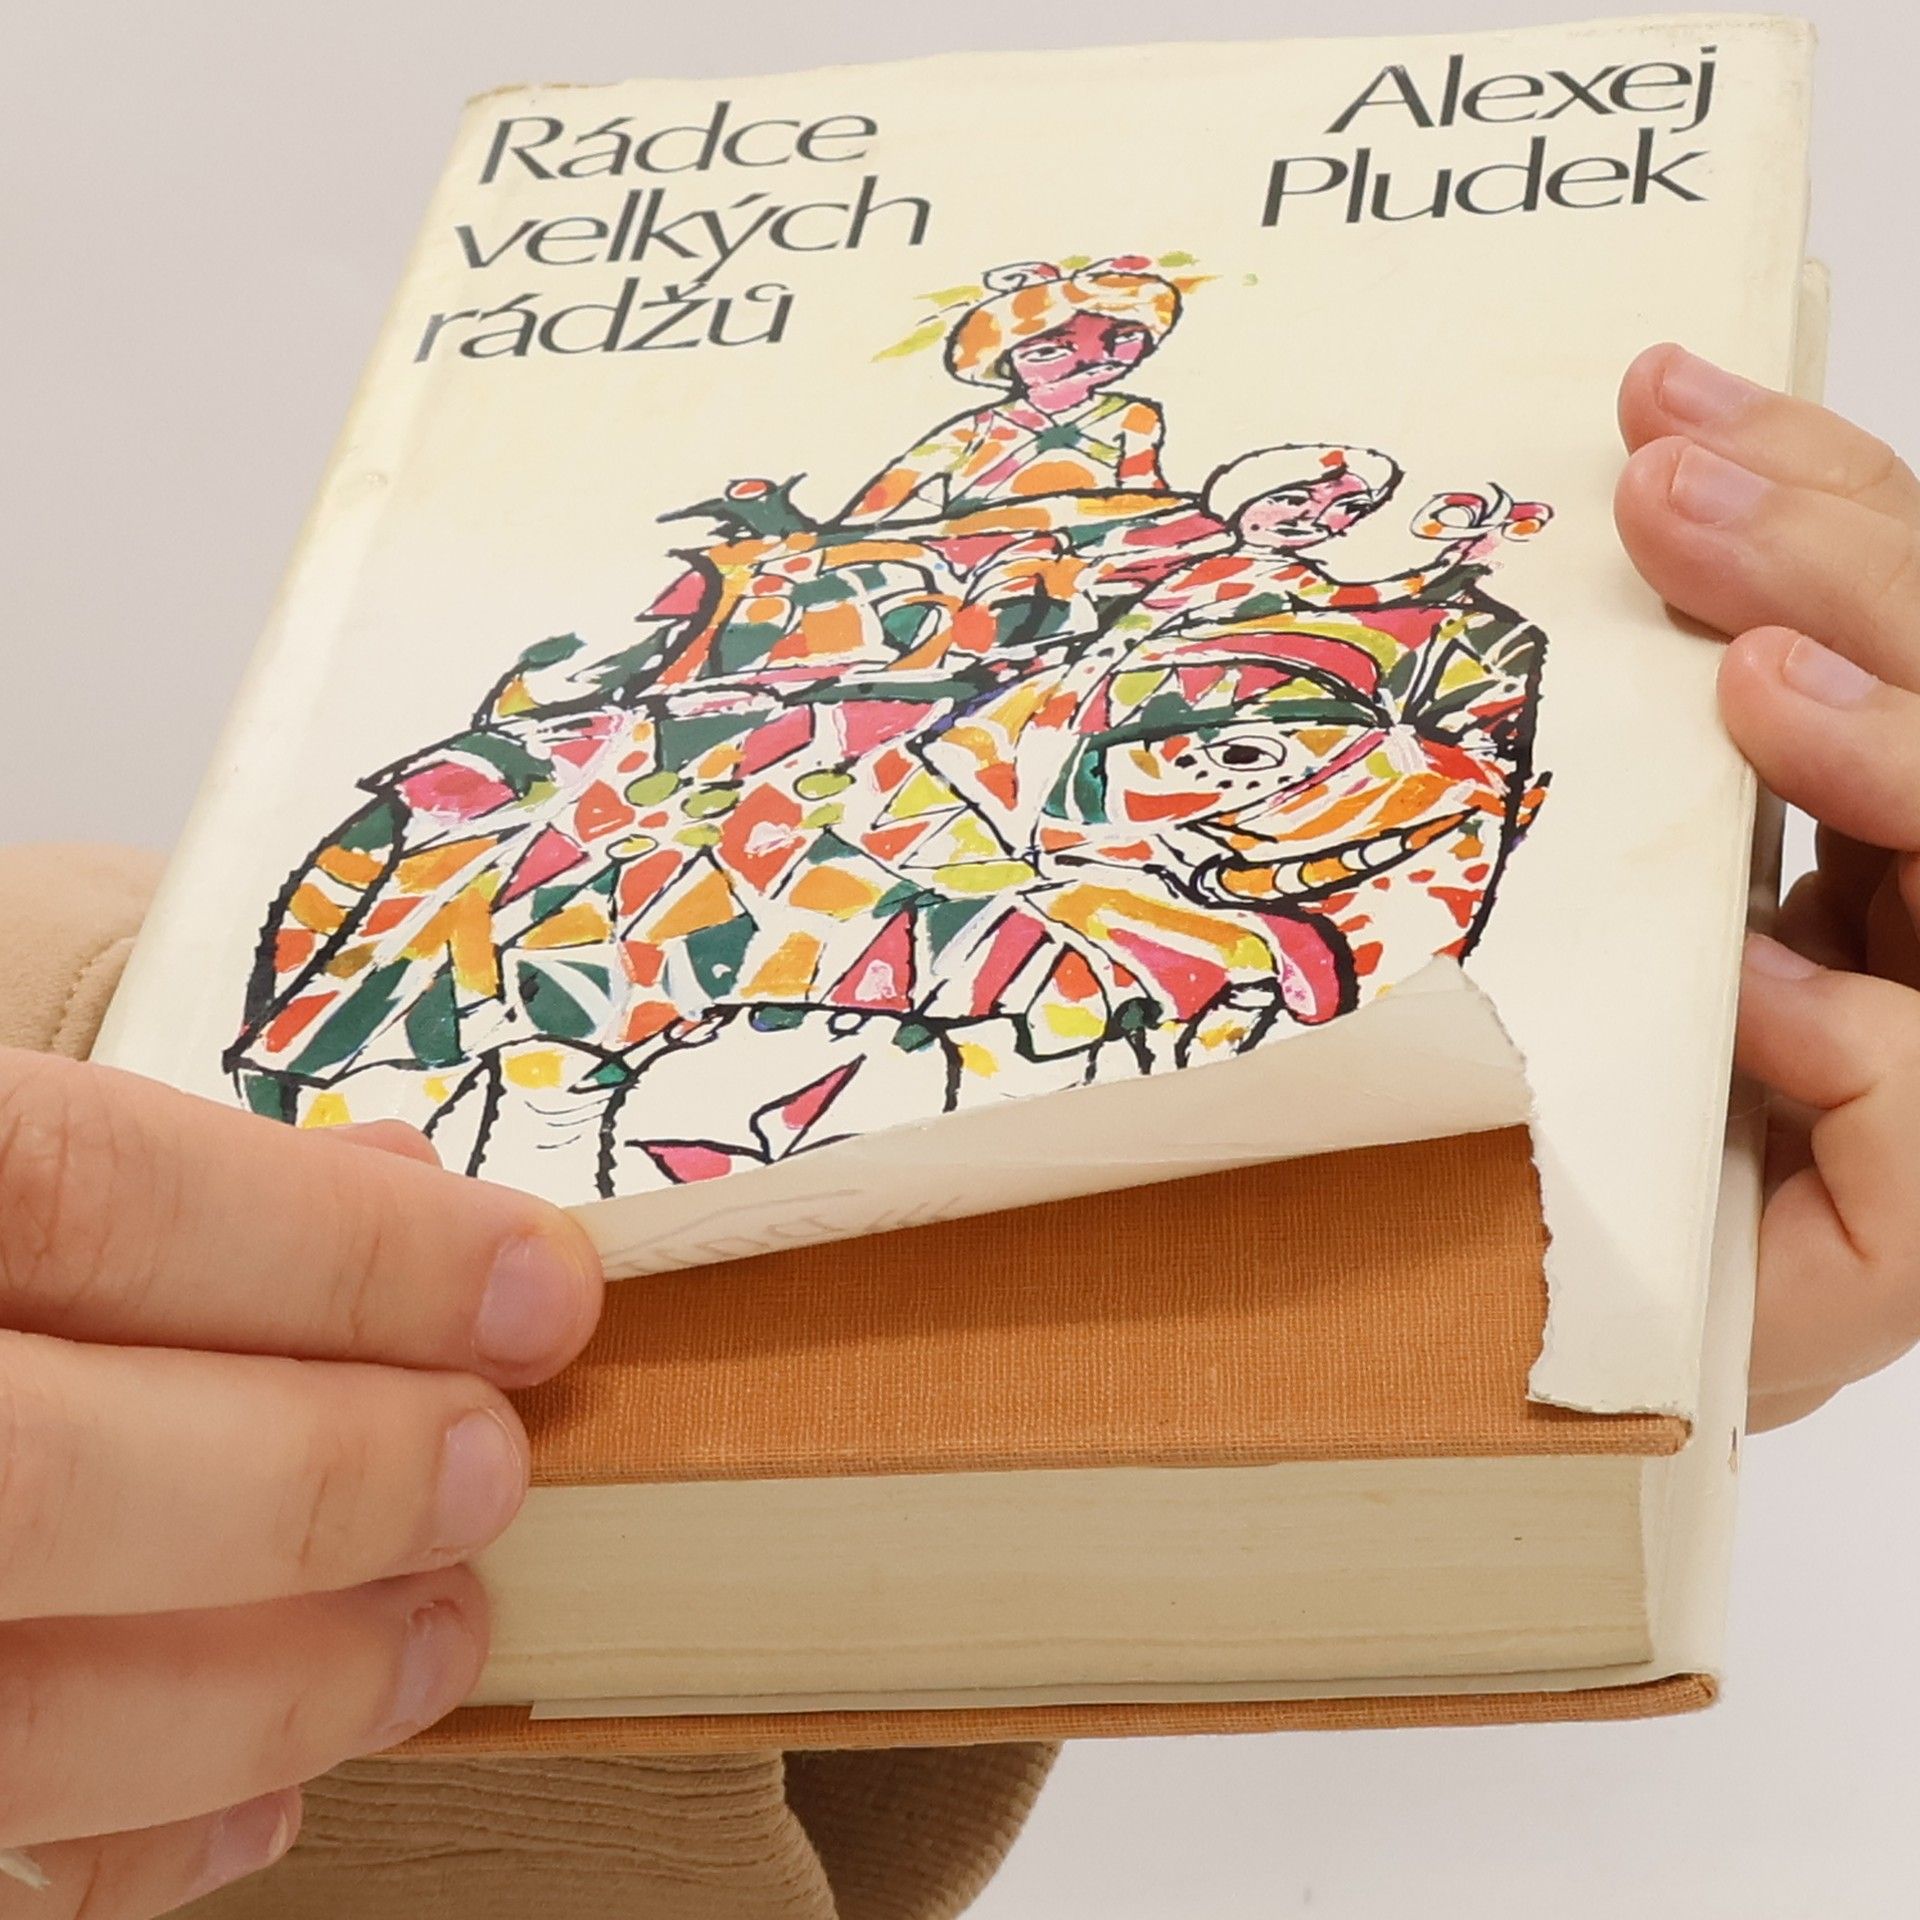 Rádce
velkých
rádžů
Alexej
Pludek